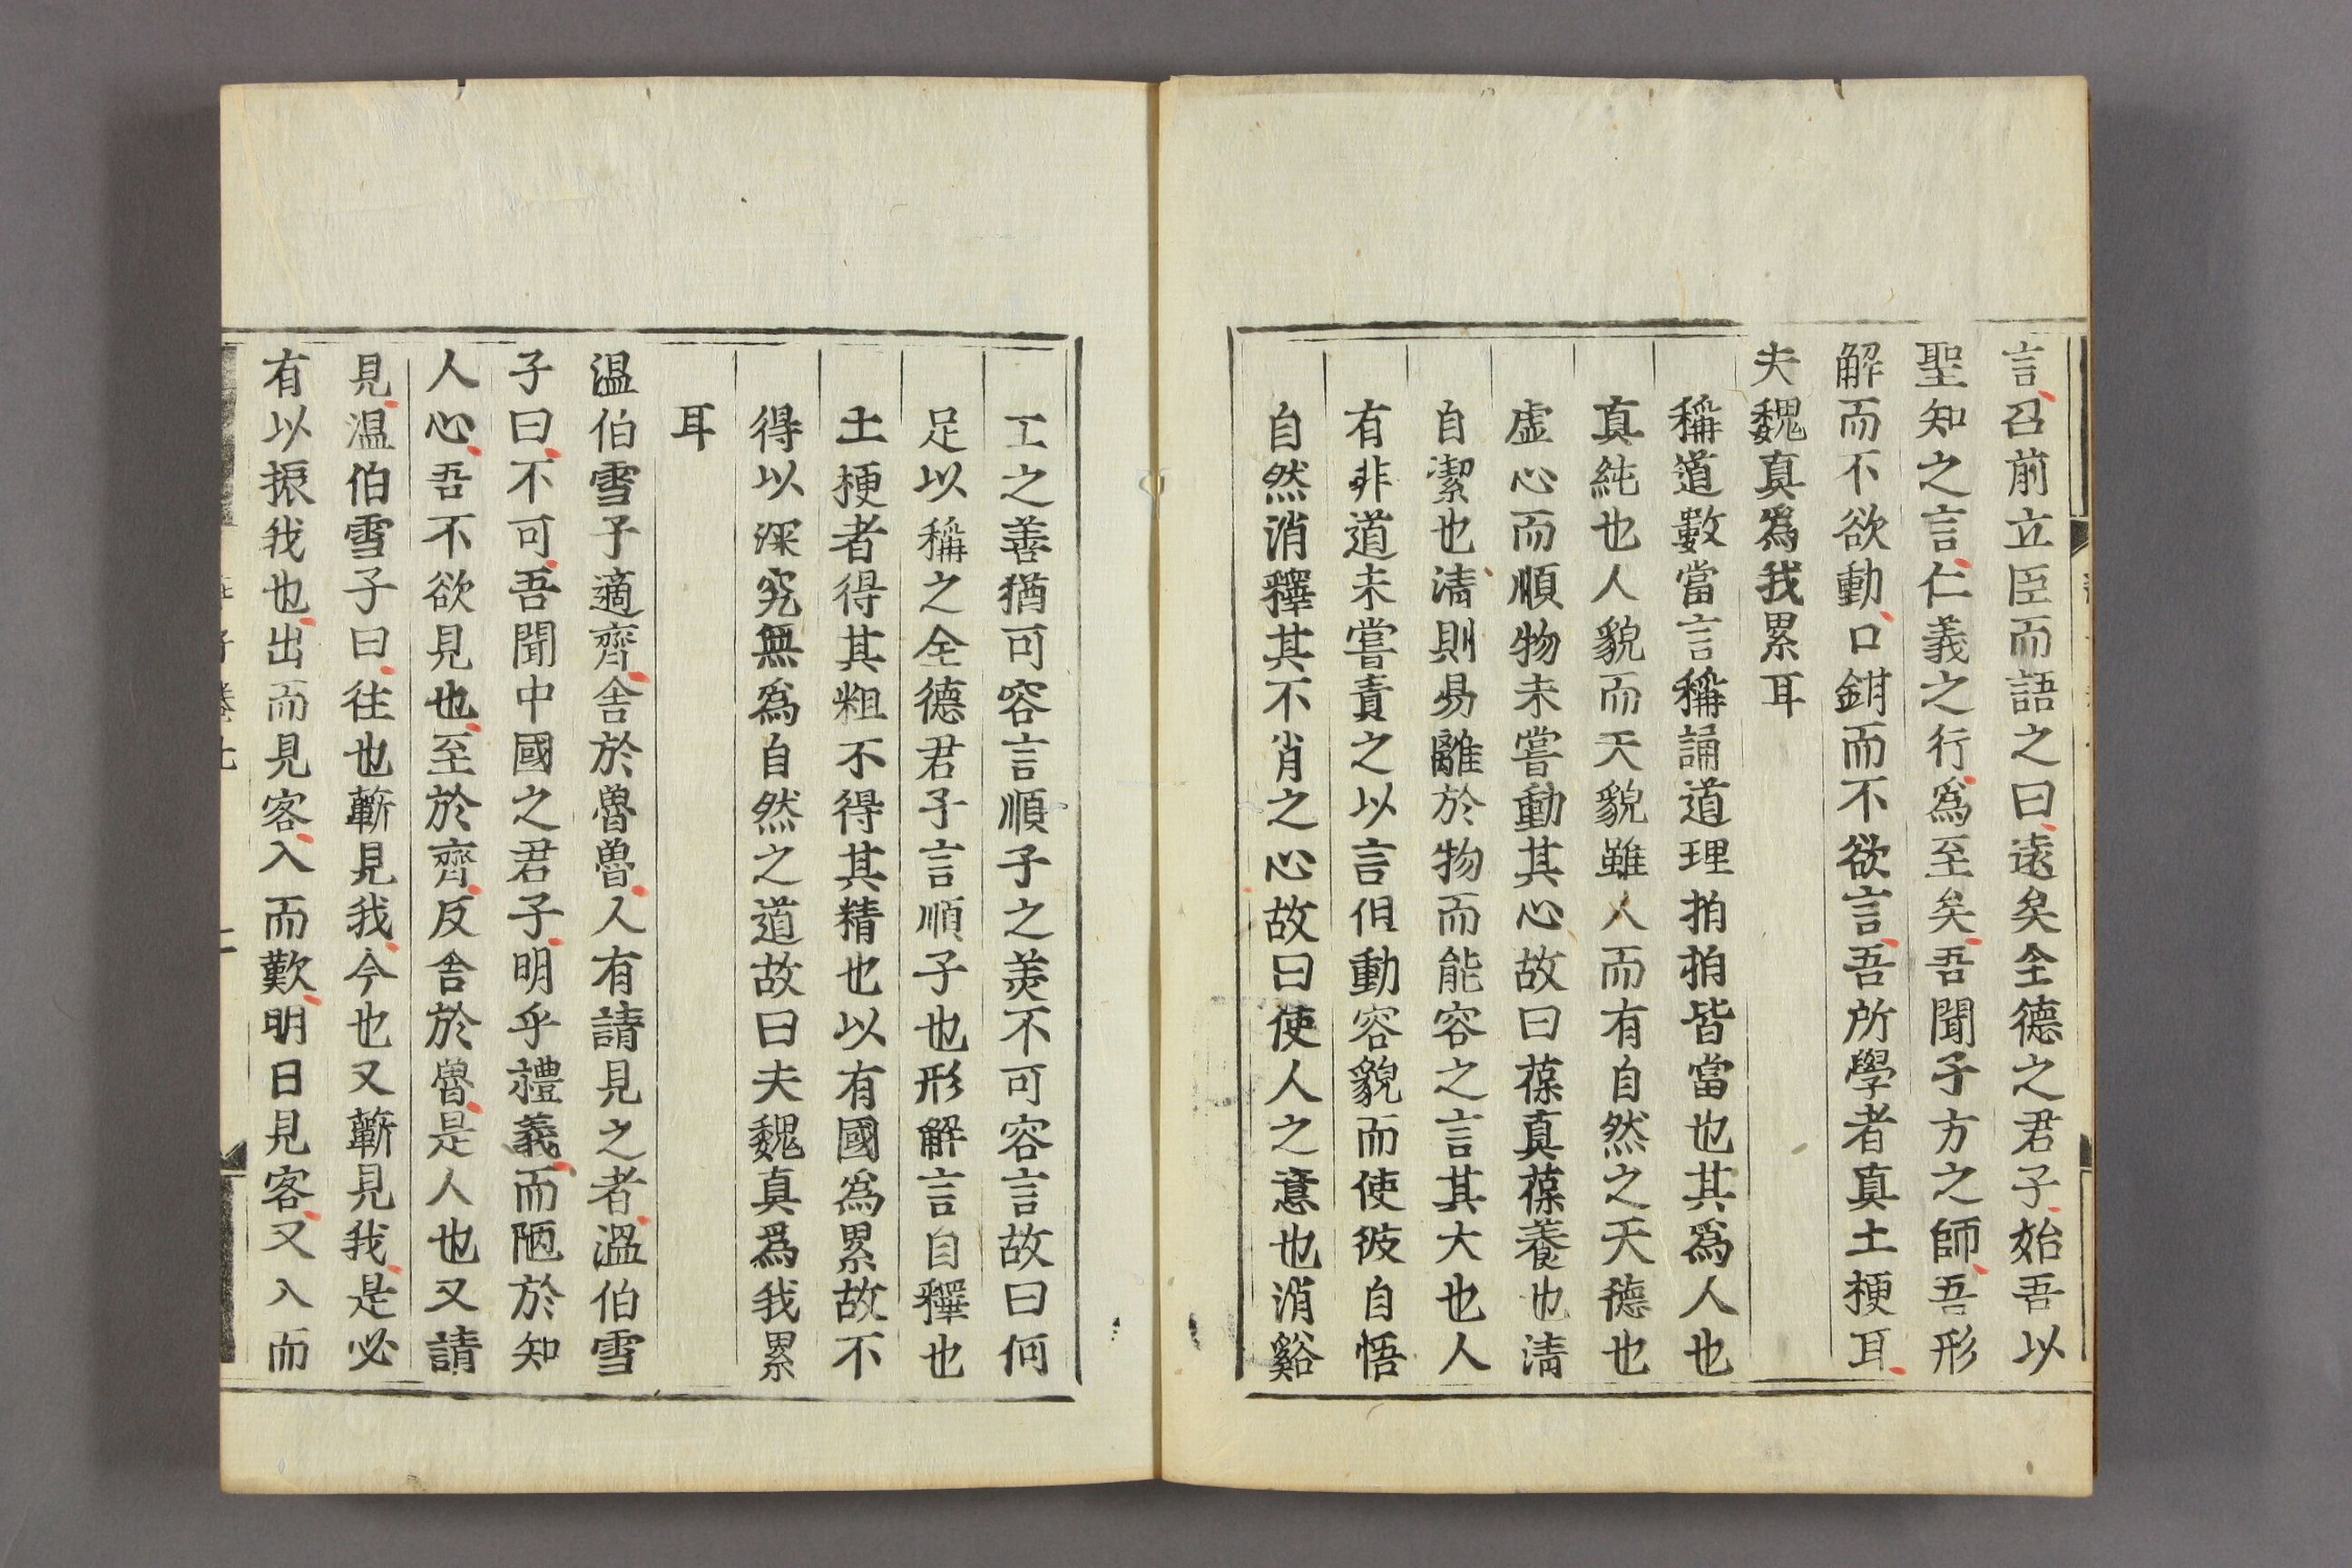 言召前立臣而語之曰遠矣全德之君子始吾以
聖知之言仁義之行爲至矣吾聞子方之師吾形
解而不欲動口鉗而不欲言吾所學者真土梗耳
夫魏真爲我累耳
稱道數當言稱誦道理拍拍皆當也其爲人也
真純也人貌而天貌雖人而有自然之天德也
虛心而順物未嘗動其心故曰葆真葆養也清
自潔也清則易離於物而能容之言其大也人
有非道未嘗責之以言但動容貌而使彼自悟
自然消釋其不肖之心故曰使人之意也消谿
工之善猶可容言順子之美不可容言故曰何
足以稱之全德君子言順子也形解言自釋也
土梗者得其粗不得其精也以有國為累故不
得以深究無為自然之道故曰夫魏真爲我累
耳
温伯雪子適齊舍於魯魯人有請見之者溫伯雪
子曰不可吾聞中國之君子明乎禮義而陋於知
人心吾不欲見也至於齊反舍於魯是人也又請
見温伯雪子曰往也蘄見我今也又蘄見我是必
有以振我也出而見客入而歎明日見客又入而